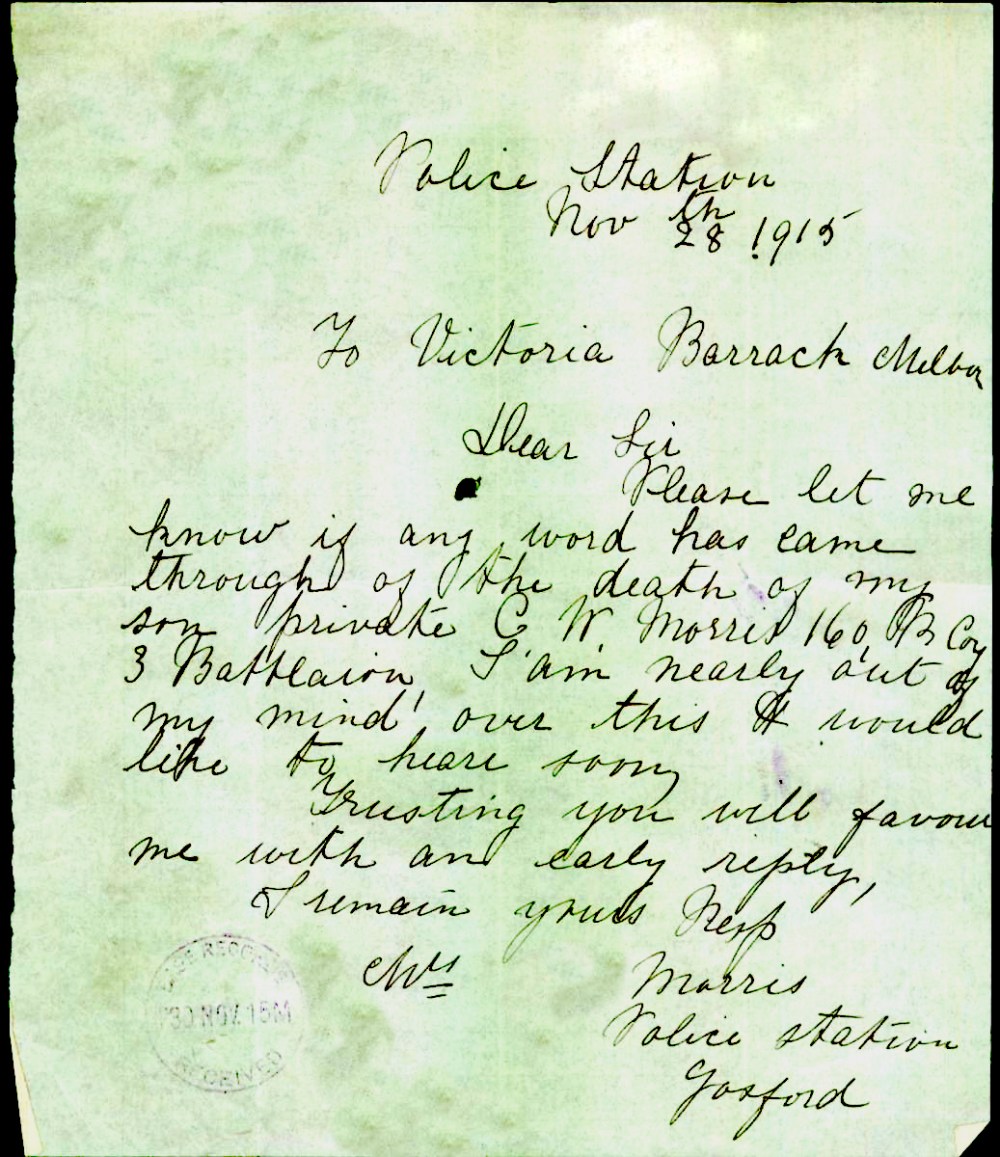 Police Station
Nov 28th 1915
To Victoria Barrack Melbou
Dear Sir
Please let me
know if any word has came
through of the death of my
son private C W Morris 160, B Coy
3 Battlaion, I am nearly out of
my mind over this & would
like to heare soon
Trusting you will favour
me with an early reply,
I remain yours Resp
Mrs Morris
Police station
Gosford
BASE RECORDS
30 NOV. 15
RECEIVED